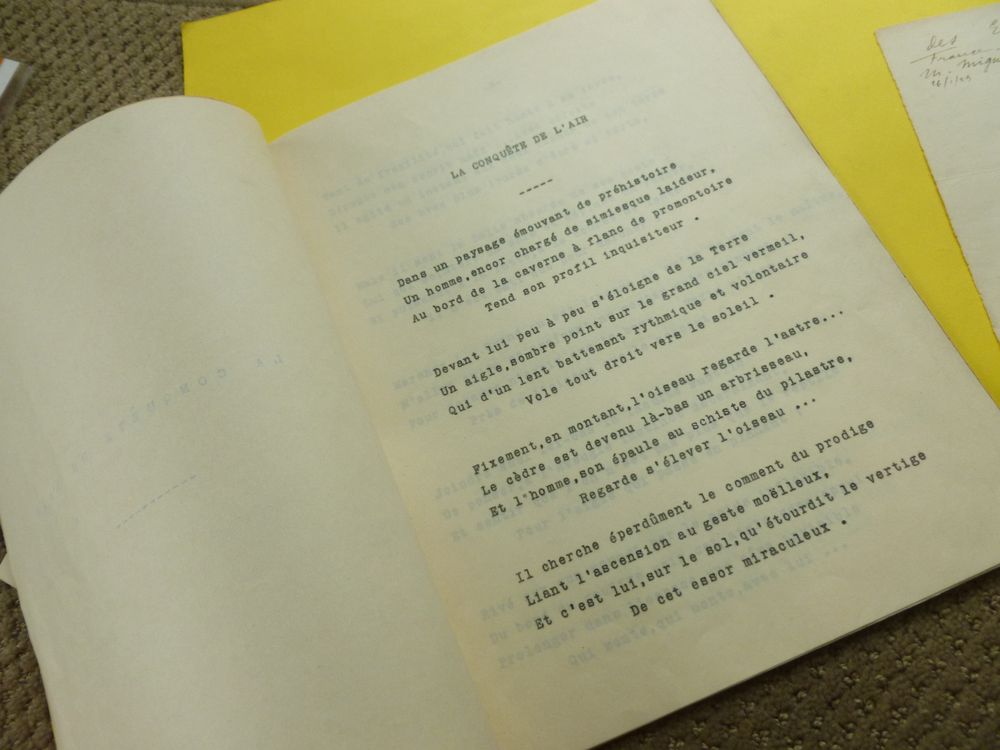 LA CONQUÊTE DE L'AIR
-----
Dans un paysage émouvant de préhistoire
Un homme,encor chargé de simiesque laideur,
Au bord de la caverne à flanc de promontoire
Tend son profil inquisiteur .
Devant lui peu à peu s'éloigne de la Terre
Un aigle,sombre point sur le grand ciel vermeil,
Qui d'un lent battement rythmique et volontaire
Vole tout droit vers le soleil .
Fixement,en montant,l'oiseau regarde l'astre...
Le cèdre est devenu là-bas un arbrisseau,
Et l'homme,son épaule au schiste du pilastre,
Regarde s'élever l'oiseau ...
Il cherche éperdûment le comment du prodige
Liant l'ascension au geste moëlleux,
Et c'est lui,sur le sol,qu'étourdit le vertige
De cet essor miraculeux .
des
France